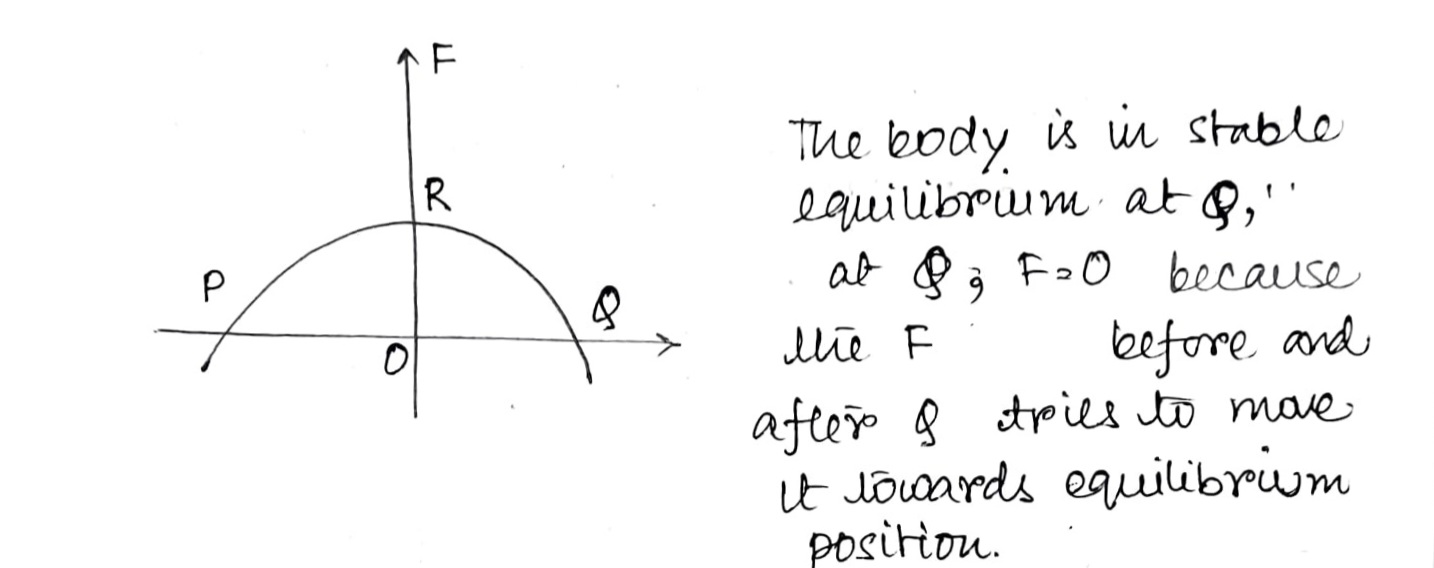 F
R
P
Q
O
The body is in stable
equilibrium at Q,''
at Q; F=0 because
the F before and
after Q tries to move
it towards equilibrium
position.